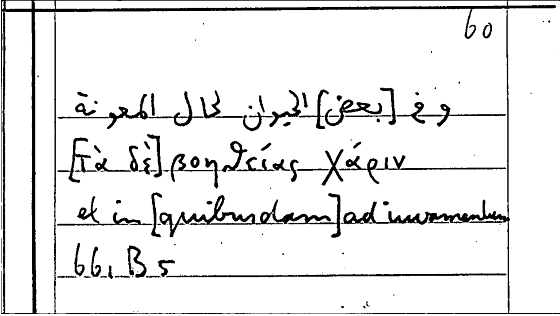 60
وفي [بعض] الحيوان لحال المعونة
[τὰ δὲ] βοηθείας χάριν
et in [quibusdam] ad iuvamentum
66, B 5